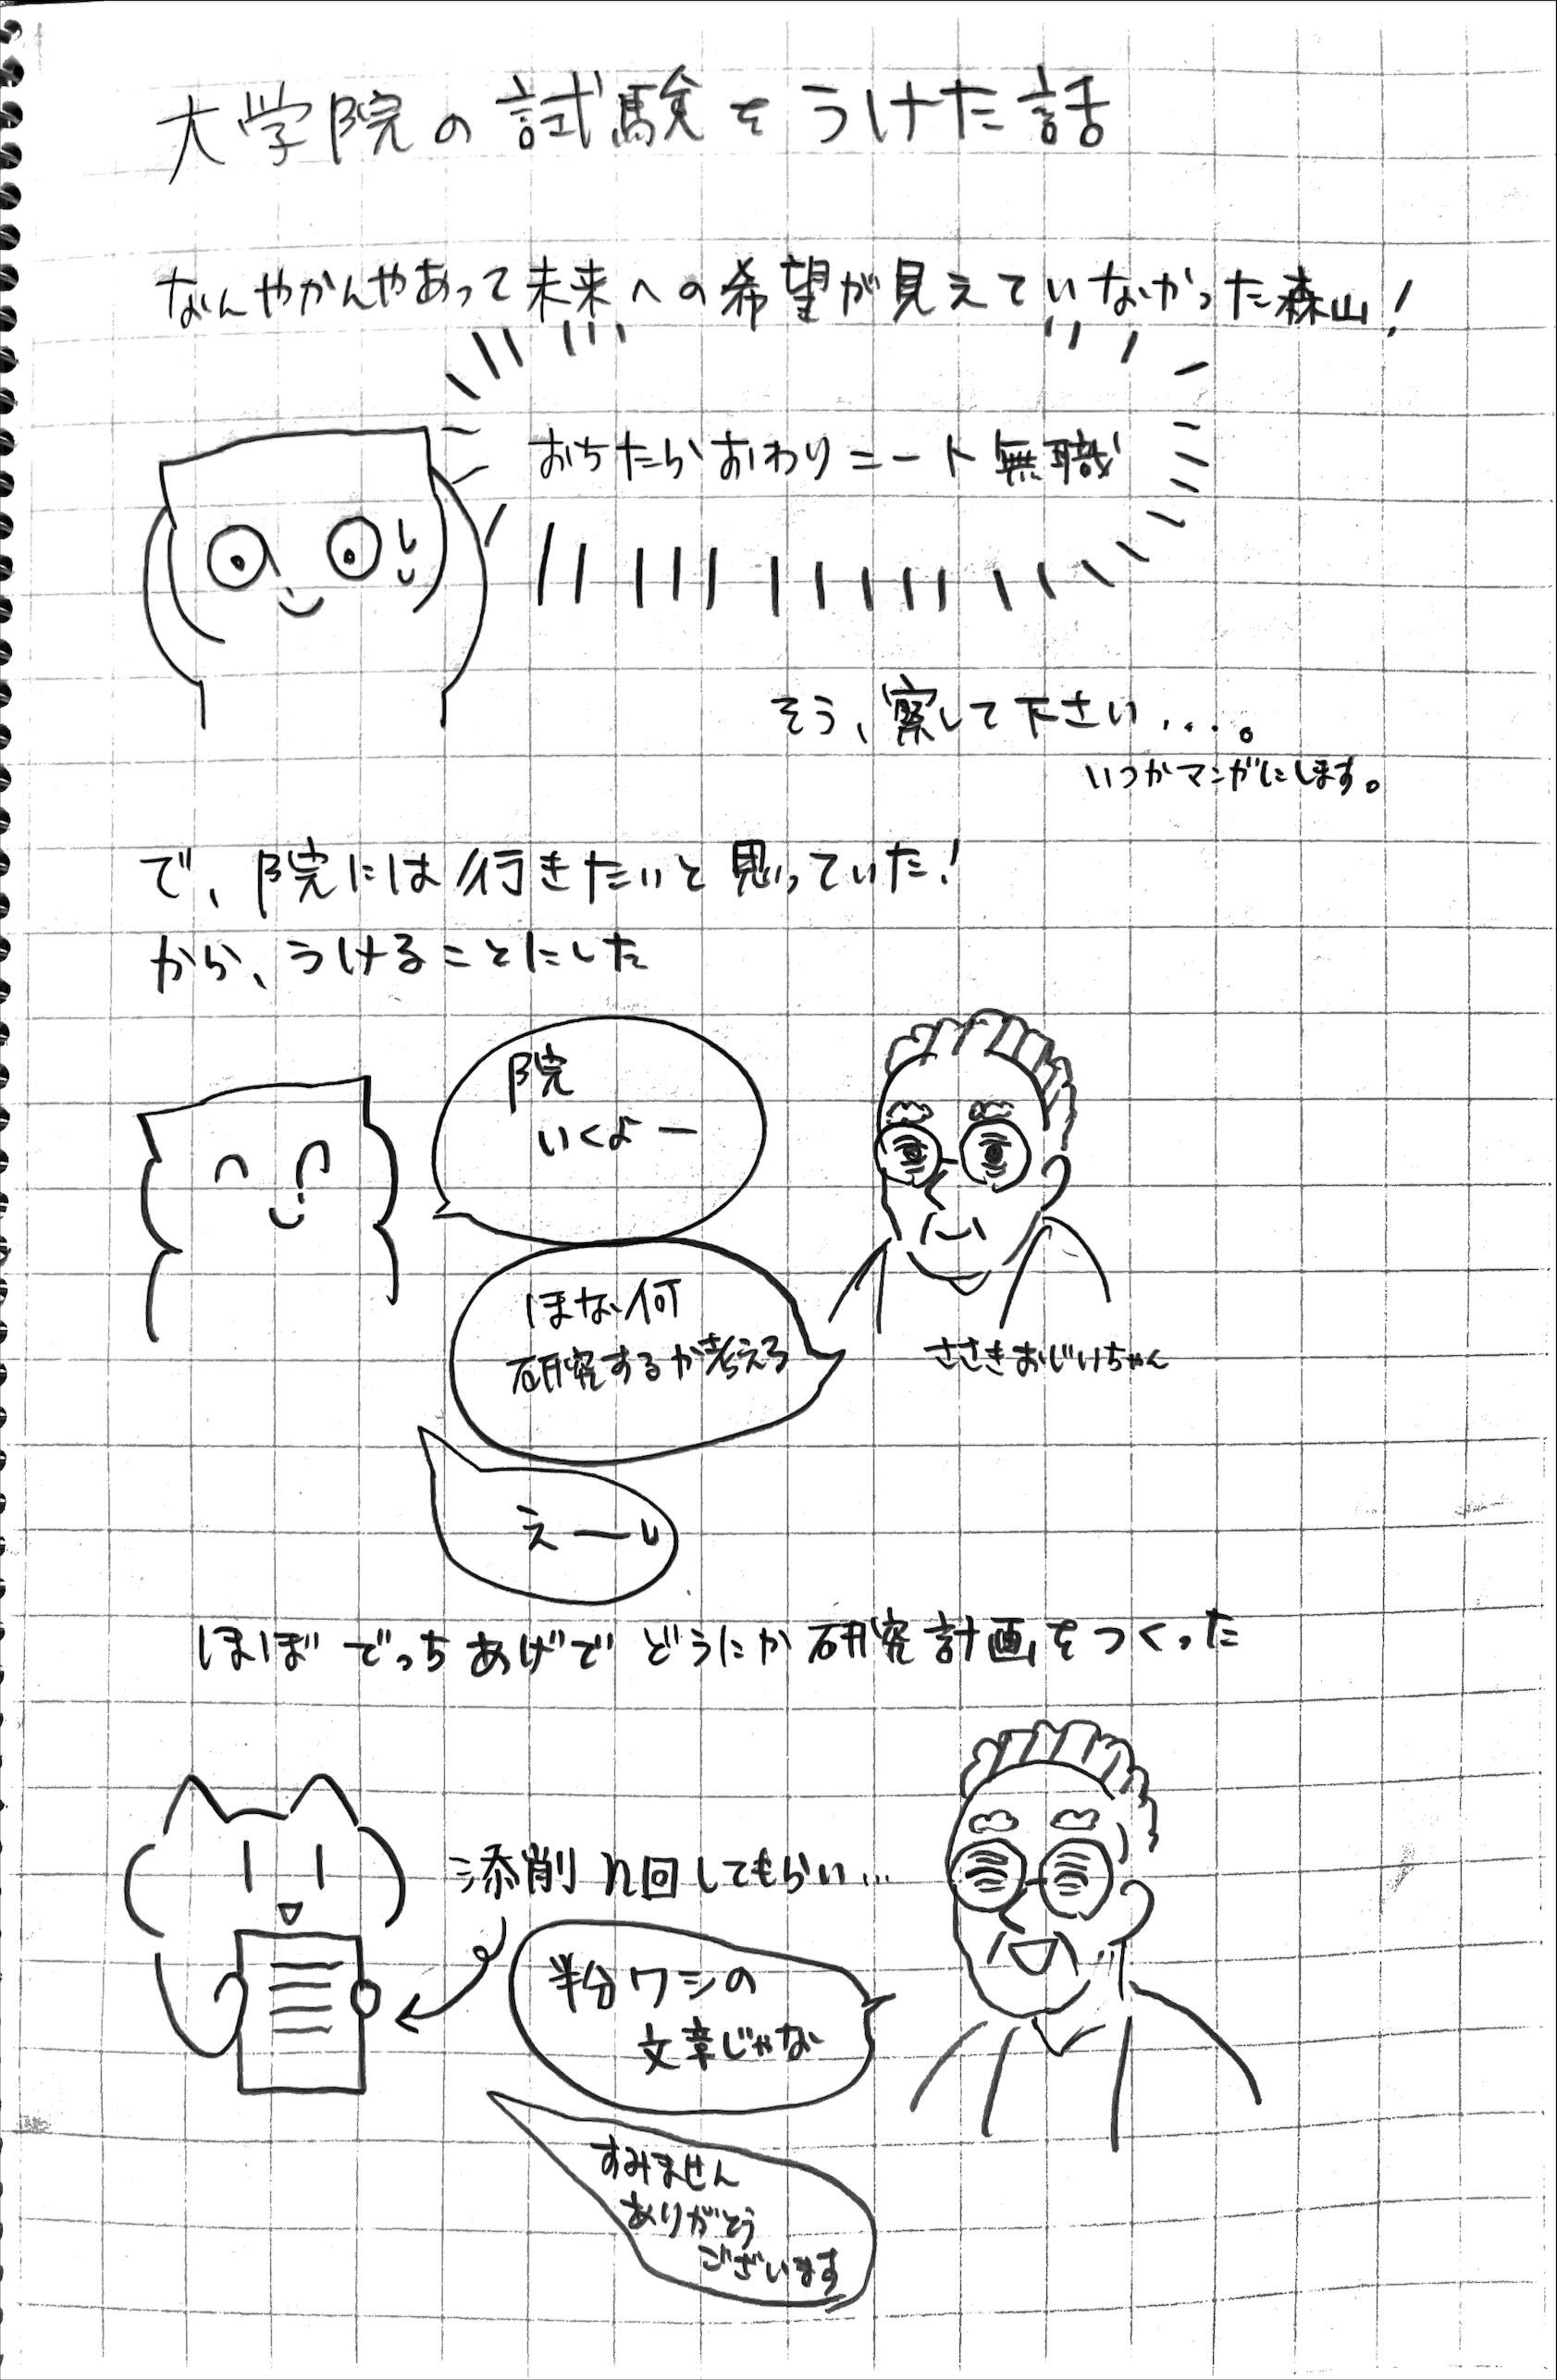 大学院の試験をうけた話
なんやかんやあって未来への希望が見えていなかった森山!
おちたらおわりニート無職
そう、察して下さい....。
いつかマンガにします。
で、院には行きたいと思っていた!
から、うけることにした
院
いくよー
ほな何
研究するか考えろ
ささきおじいちゃん
えーい
ほぼでっちあげでどうにか研究計画をつくった
添削n回してもらい...
半分ワシの
文章じゃな
すみません
ありがとう
ございます